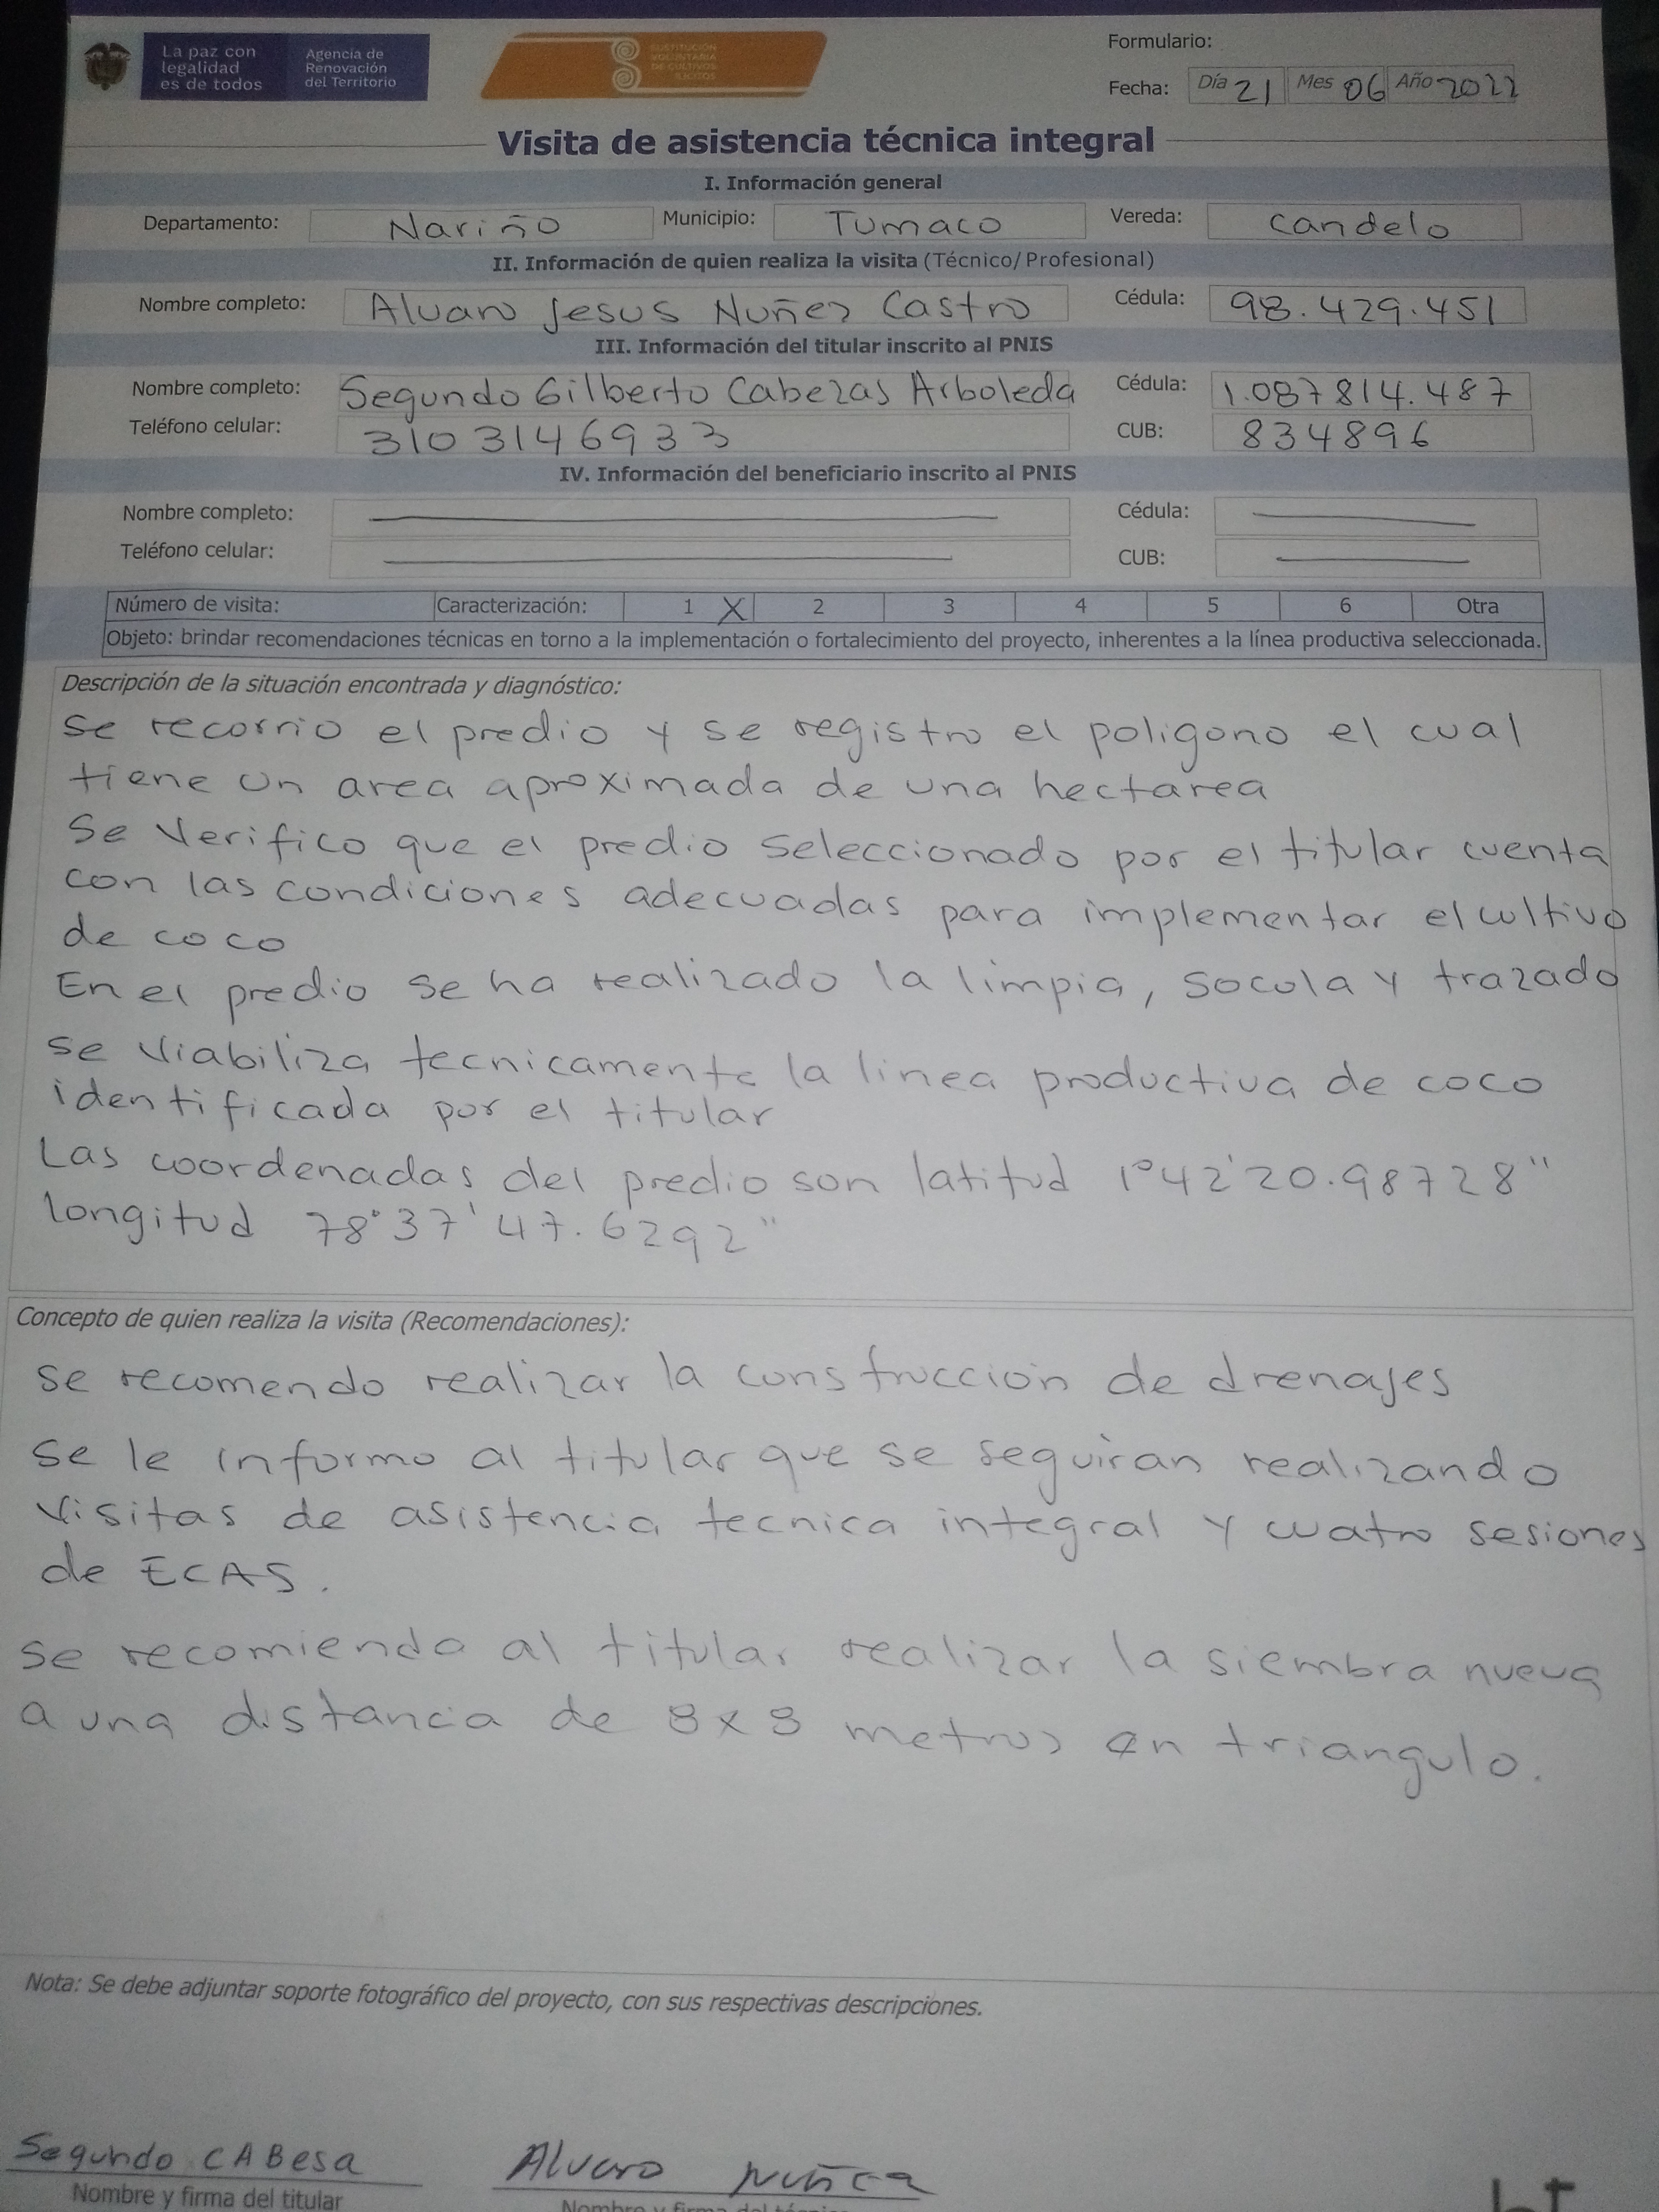 La paz con
legalidad
es de todos
Agencia de
Renovación
del Territorio
SUSTITUCIÓN
VOLUNTARIA
DE CULTIVOS
ILÍCITOS
Formulario:
Fecha: Día 21 Mes 06 Año 2022
Visita de asistencia técnica integral
I. Información general
Departamento: Nariño Municipio: Tumaco Vereda: Candelo
II. Información de quien realiza la visita (Técnico/Profesional)
Nombre completo: Alvaro Jesus Nuñez Castro Cédula: 98.429.451
III. Información del titular inscrito al PNIS
Nombre completo: Segundo Gilberto Cabezas Arboleda Cédula: 1.087814.487
Teléfono celular: 3103146933 CUB: 834896
IV. Información del beneficiario inscrito al PNIS
Nombre completo: Cédula:
Teléfono celular: CUB:
Número de visita: Caracterización: 1 X 2 3 4 5 6 Otra
Objeto: brindar recomendaciones técnicas en torno a la implementación o fortalecimiento del proyecto, inherentes a la línea productiva seleccionada.
Descripción de la situación encontrada y diagnóstico:
Se recorrio el predio y se registro el poligono el cual
tiene un area aproximada de una hectarea
Se Verifico que el predio seleccionado por el titular cuenta
con las condiciones adecuadas para implementar el cultivo
de coco
En el predio se ha realizado la limpia, socola y trazado
se Viabiliza tecnicamente la linea productiva de coco
identificada por el titular
Las coordenadas del predio son latitud 1°42'20.98728"
longitud 78°37'47.6292"
Concepto de quien realiza la visita (Recomendaciones):
se recomendo realizar la construcción de drenajes
se le informo al titular que se seguiran realizando
Visitas de asistencia tecnica integral y cuatro sesiones
de ECAS.
se recomienda al titular realizar la siembra nueva
a una distancia de 8x8 metros en triangulo.
Nota: Se debe adjuntar soporte fotográfico del proyecto, con sus respectivas descripciones.
Segundo CABesa Alvaro Nuñez
Nombre y firma del titular